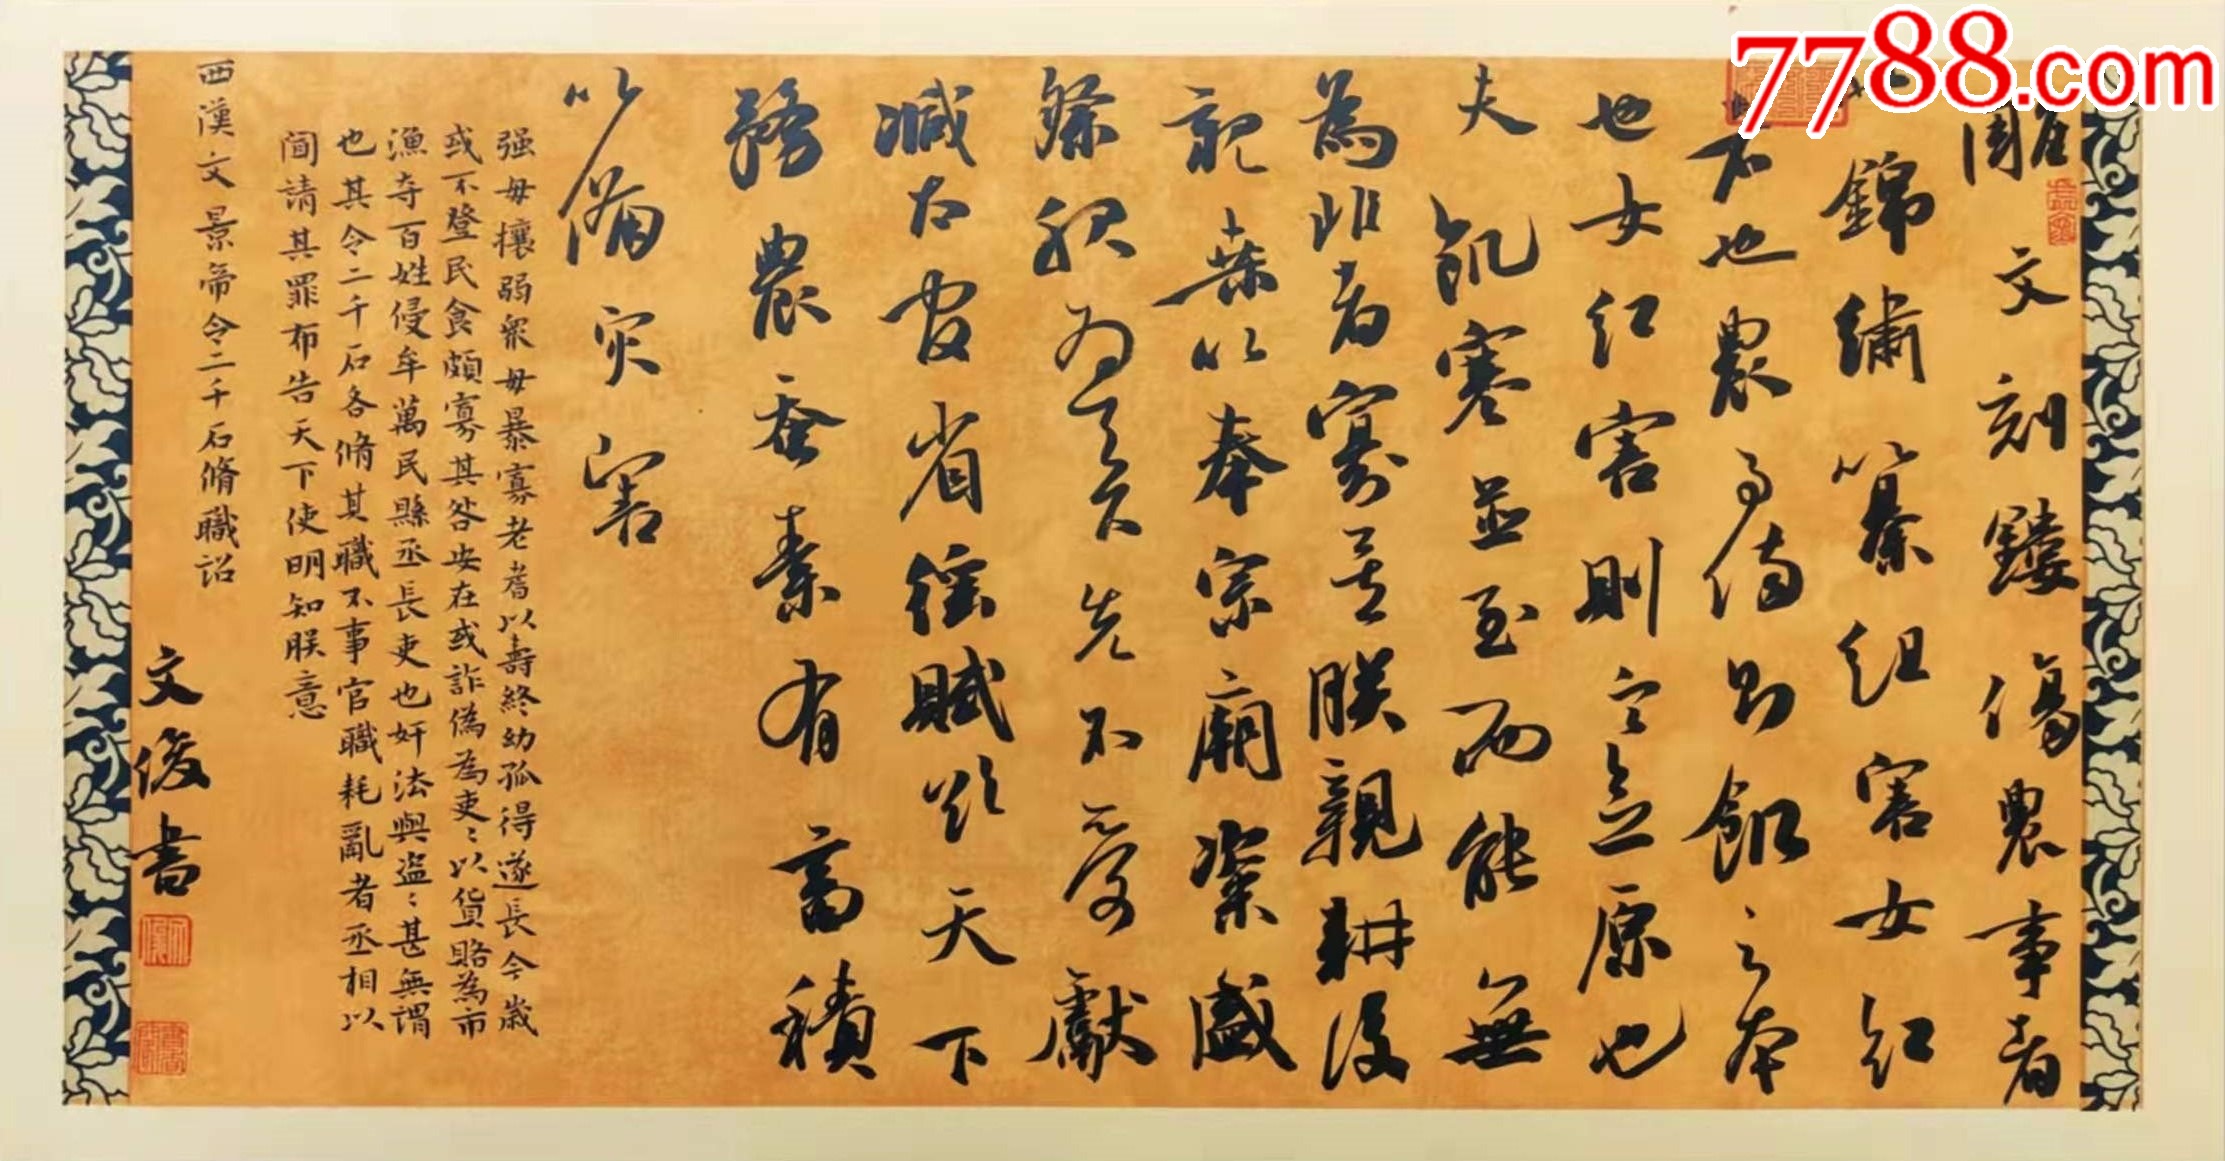 7788.com
雕文刻鏤傷農事者
也錦繡纂組害女紅
者也農事傷則飢之本
也女紅害則寒之原也
夫飢寒並至而能無
為非者寡矣朕親耕後
親桑以奉宗廟粢盛
祭服為天下先不受獻
減太官省徭賦欲天下
務農蚕素有畜積
以備灾害
强毋攘弱衆毋暴寡老耆以壽終幼孤得遂長今歲
或不登民食頗寡其咎安在或詐偽為吏〻以貨賂為市
漁夺百姓侵牟萬民縣丞長吏也奸法與盗〻甚無謂
也其令二千石各脩其職不事官職耗亂者丞相以
聞請其罪布告天下使明知朕意
西漢文景帝令二千石脩職詔
文俊書